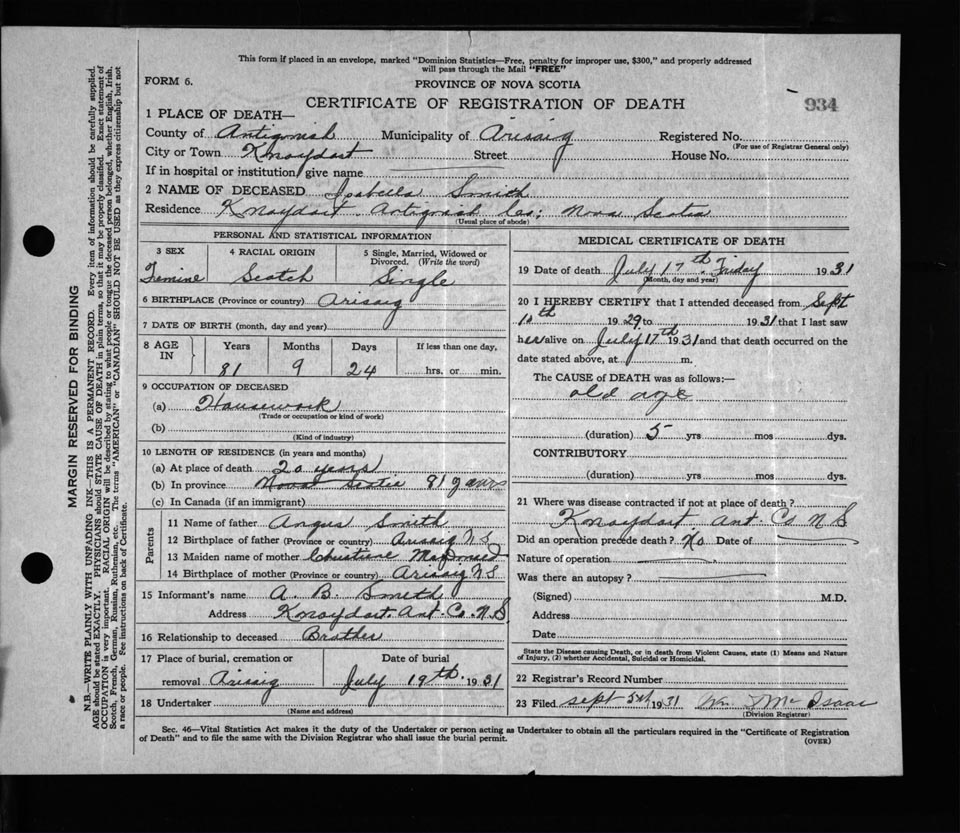 This form if placed in an envelope, marked "Dominion Statistics—Free, penalty for improper use, $300," and properly addressed
will pass through the Mail "FREE"
FORM 6.
PROVINCE OF NOVA SCOTIA
CERTIFICATE OF REGISTRATION OF DEATH
934
1 PLACE OF DEATH—
County of Antigonish Municipality of Arisaig Registered No.
(For use of Registrar General only)
City or Town Knoydart Street House No.
If in hospital or institution, give name
2 NAME OF DECEASED Isabella Smith
Residence Knoydart Antigonish Co; Nova Scotia
(Usual place of abode)
PERSONAL AND STATISTICAL INFORMATION
3 SEX 4 RACIAL ORIGIN 5 Single, Married, Widowed or
Divorced. (Write the word)
Femine Scotch Single
6 BIRTHPLACE (Province or country) Arisaig
7 DATE OF BIRTH (month, day and year)
8 AGE IN Years Months Days If less than one day,
81 9 24 hrs. or min.
9 OCCUPATION OF DECEASED
(a) Housework
(Trade or occupation or kind of work)
(b)
(Kind of industry)
10 LENGTH OF RESIDENCE (in years and months)
(a) At place of death 20 years
(b) In province Nova Scotia 81 years
(c) In Canada (if an immigrant)
Parents
11 Name of father Angus Smith
12 Birthplace of father (Province or country) Arisaig N.S
13 Maiden name of mother Christine MacDonald
14 Birthplace of mother (Province or country) Arisaig N.S
15 Informant's name A. B. Smith
Address Knoydart. Ant. Co. N.S
16 Relationship to deceased Brother
17 Place of burial, cremation or Date of burial
removal Arisaig July 19th. 1931
18 Undertaker
(Name and address)
MEDICAL CERTIFICATE OF DEATH
19 Date of death July 17th. Friday 1931
(Month, day and year)
20 I HEREBY CERTIFY that I attended deceased from Sept
10th 1929 to 1931 that I last saw
her alive on July 17th 1931 and that death occurred on the
date stated above, at m.
The CAUSE of DEATH was as follows:—
old age
(duration) 5 yrs mos dys.
CONTRIBUTORY
(duration) yrs mos dys.
21 Where was disease contracted if not at place of death?
Knoydart Ant. Co N S
Did an operation precede death? No Date of
Nature of operation
Was there an autopsy?
(Signed) M.D.
Address
Date
State the Disease causing Death, or in death from Violent Causes, state (1) Means and Nature
of Injury, (2) whether Accidental, Suicidal or Homicidal.
22 Registrar's Record Number
23 Filed Sept 1931 Wm McIsaac
(Division Registrar)
Sec. 46—Vital Statistics Act makes it the duty of the Undertaker or person acting as Undertaker to obtain all the particulars required in the "Certificate of Registration
of Death" and to file the same with the Division Registrar who shall issue the burial permit.
(OVER)
MARGIN RESERVED FOR BINDING
N.B.—WRITE PLAINLY WITH UNFADING INK—THIS IS A PERMANENT RECORD. Every item of information should be carefully supplied.
AGE should be stated EXACTLY. PHYSICIANS should STATE CAUSE OF DEATH in plain terms, so that it may be properly classified. Exact statement of
OCCUPATION is very important. RACIAL ORIGIN will be described by stating to what people or tongue the deceased person belonged, whether English, Irish,
Scotch, French, German, Russian, Ruthenian, etc. The terms "AMERICAN" or "CANADIAN" SHOULD NOT BE USED as they express citizenship but not
a race or people. See instructions on back of Certificate.